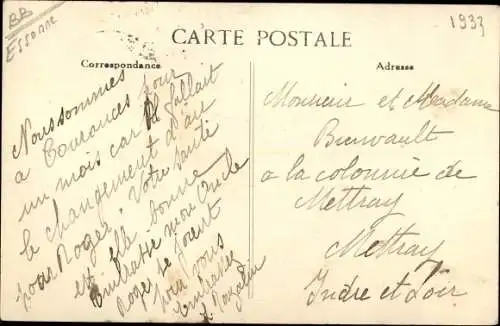 BB
Essonne
1933
CARTE POSTALE
Correspondance
Adresse
Nous sommes
a Courances pour
un mois car il fallait
le changement d'air
pour Roger. Votre santé
est elle bonne
Embrasse mon Oncle
Roger se joint
pour vous
embrasser
Monsieur et Madame
a la colonnie de
Mettray
Mettray
Indre et Loir